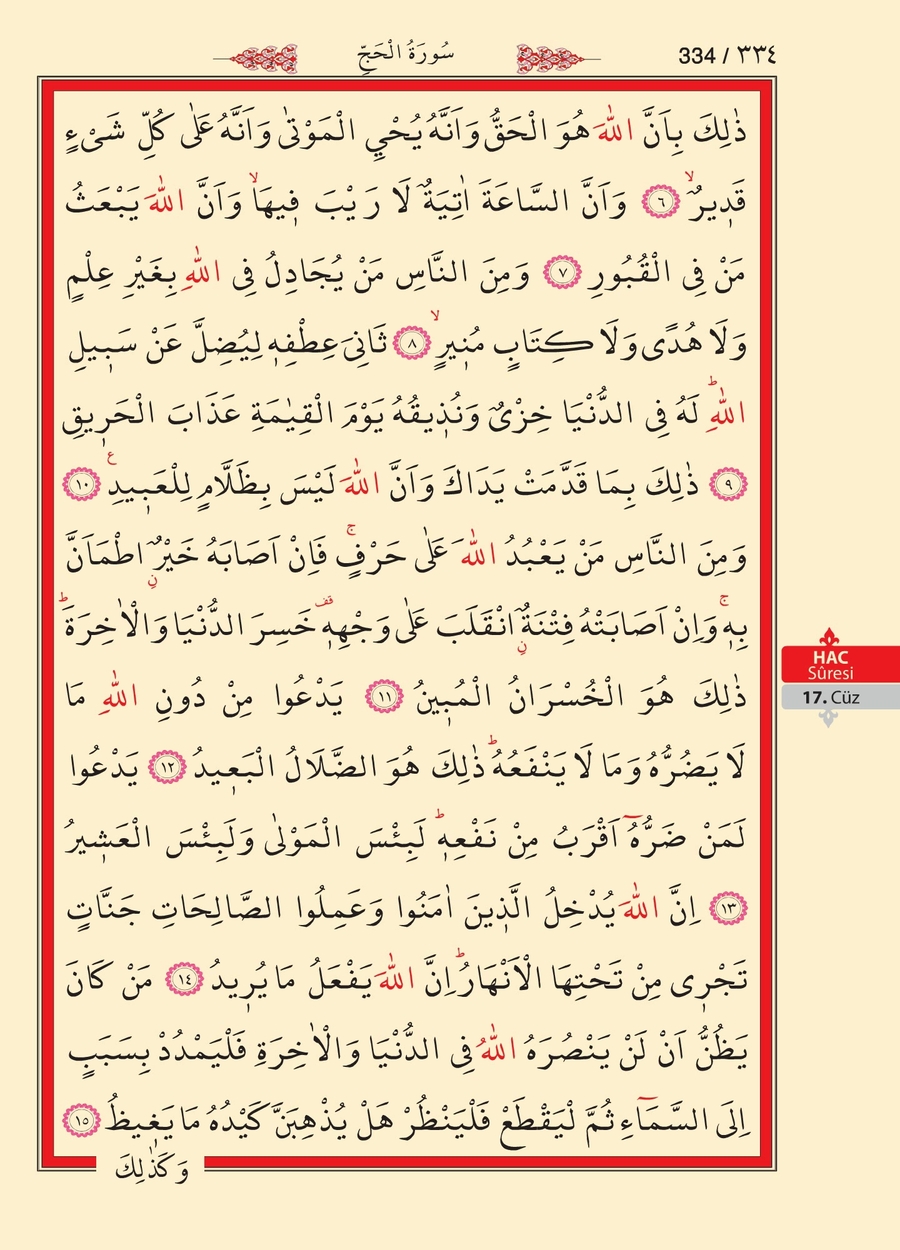 سُورَةُ الْحَجِّ
334 / ٣٣٤
ذٰلِكَ بِاَنَّ اللّٰهَ هُوَ الْحَقُّ وَاَنَّهُ يُحْيِي الْمَوْتٰى وَاَنَّهُ عَلٰى كُلِّ شَىْءٍ
قَد۪يرٌۙ ﴿٦﴾ وَاَنَّ السَّاعَةَ اٰتِيَةٌ لَا رَيْبَ ف۪يهَاۙ وَاَنَّ اللّٰهَ يَبْعَثُ
مَنْ فِى الْقُبُورِ ﴿٧﴾ وَمِنَ النَّاسِ مَنْ يُجَادِلُ فِى اللّٰهِ بِغَيْرِ عِلْمٍ
وَلَا هُدًى وَلَا كِتَابٍ مُن۪يرٍۙ ﴿٨﴾ ثَانِىَ عِطْفِه۪ لِيُضِلَّ عَنْ سَب۪يلِ
اللّٰهِۜ لَهُ فِى الدُّنْيَا خِزْىٌ وَنُذ۪يقُهُ يَوْمَ الْقِيٰمَةِ عَذَابَ الْحَر۪يقِ
﴿٩﴾ ذٰلِكَ بِمَا قَدَّمَتْ يَدَاكَ وَاَنَّ اللّٰهَ لَيْسَ بِظَلَّامٍ لِلْعَب۪يدِ ع ﴿١٠﴾
وَمِنَ النَّاسِ مَنْ يَعْبُدُ اللّٰهَ عَلٰى حَرْفٍۚ فَاِنْ اَصَابَهُ خَيْرٌۨ اطْمَاَنَّ
بِه۪ۚ وَاِنْ اَصَابَتْهُ فِتْنَةٌۨ انْقَلَبَ عَلٰى وَجْهِه۪ قف خَسِرَ الدُّنْيَا وَالْاٰخِرَةَۜ
ذٰلِكَ هُوَ الْخُسْرَانُ الْمُب۪ينُ ﴿١١﴾ يَدْعُوا مِنْ دُونِ اللّٰهِ مَا
لَا يَضُرُّهُ وَمَا لَا يَنْفَعُهُۜ ذٰلِكَ هُوَ الضَّلَالُ الْبَع۪يدُ ﴿١٢﴾ يَدْعُوا
لَمَنْ ضَرُّهُٓ اَقْرَبُ مِنْ نَفْعِه۪ۜ لَبِئْسَ الْمَوْلٰى وَلَبِئْسَ الْعَش۪يرُ
﴿١٣﴾ اِنَّ اللّٰهَ يُدْخِلُ الَّذ۪ينَ اٰمَنُوا وَعَمِلُوا الصَّالِحَاتِ جَنَّاتٍ
تَجْر۪ى مِنْ تَحْتِهَا الْاَنْهَارُۜ اِنَّ اللّٰهَ يَفْعَلُ مَا يُر۪يدُ ﴿١٤﴾ مَنْ كَانَ
يَظُنُّ اَنْ لَنْ يَنْصُرَهُ اللّٰهُ فِى الدُّنْيَا وَالْاٰخِرَةِ فَلْيَمْدُدْ بِسَبَبٍ
اِلَى السَّمَٓاءِ ثُمَّ لْيَقْطَعْ فَلْيَنْظُرْ هَلْ يُذْهِبَنَّ كَيْدُهُ مَا يَغ۪يظُ ﴿١٥﴾
وَكَذٰلِكَ
HAC
Sûresi
17. Cüz